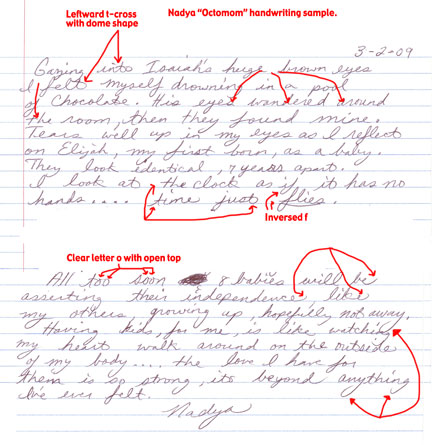 Leftward t-cross
with dome shape
Nadya "Octomom" handwriting sample.
3-2-09
Gazing into Isaiah's huge brown eyes
I felt myself drowning in a pool
of Chocolate. His eyes wandered around
the room, then they found mine.
Tears well up in my eyes as I reflect
on Elijah, my first born, as a baby.
They look identical, 7 years apart.
I look at the clock as if it has no
hands.... time just flies.
Inversed f
Clear letter o with open top
All too soon 8 babies will be
asserting their independence, like
my others growing up, hopefully not away.
Having kids, for me, is like watching
my heart walk around on the outside
of my body.... the love I have for
them is so strong, its beyond anything
I've ever felt.
Nadya